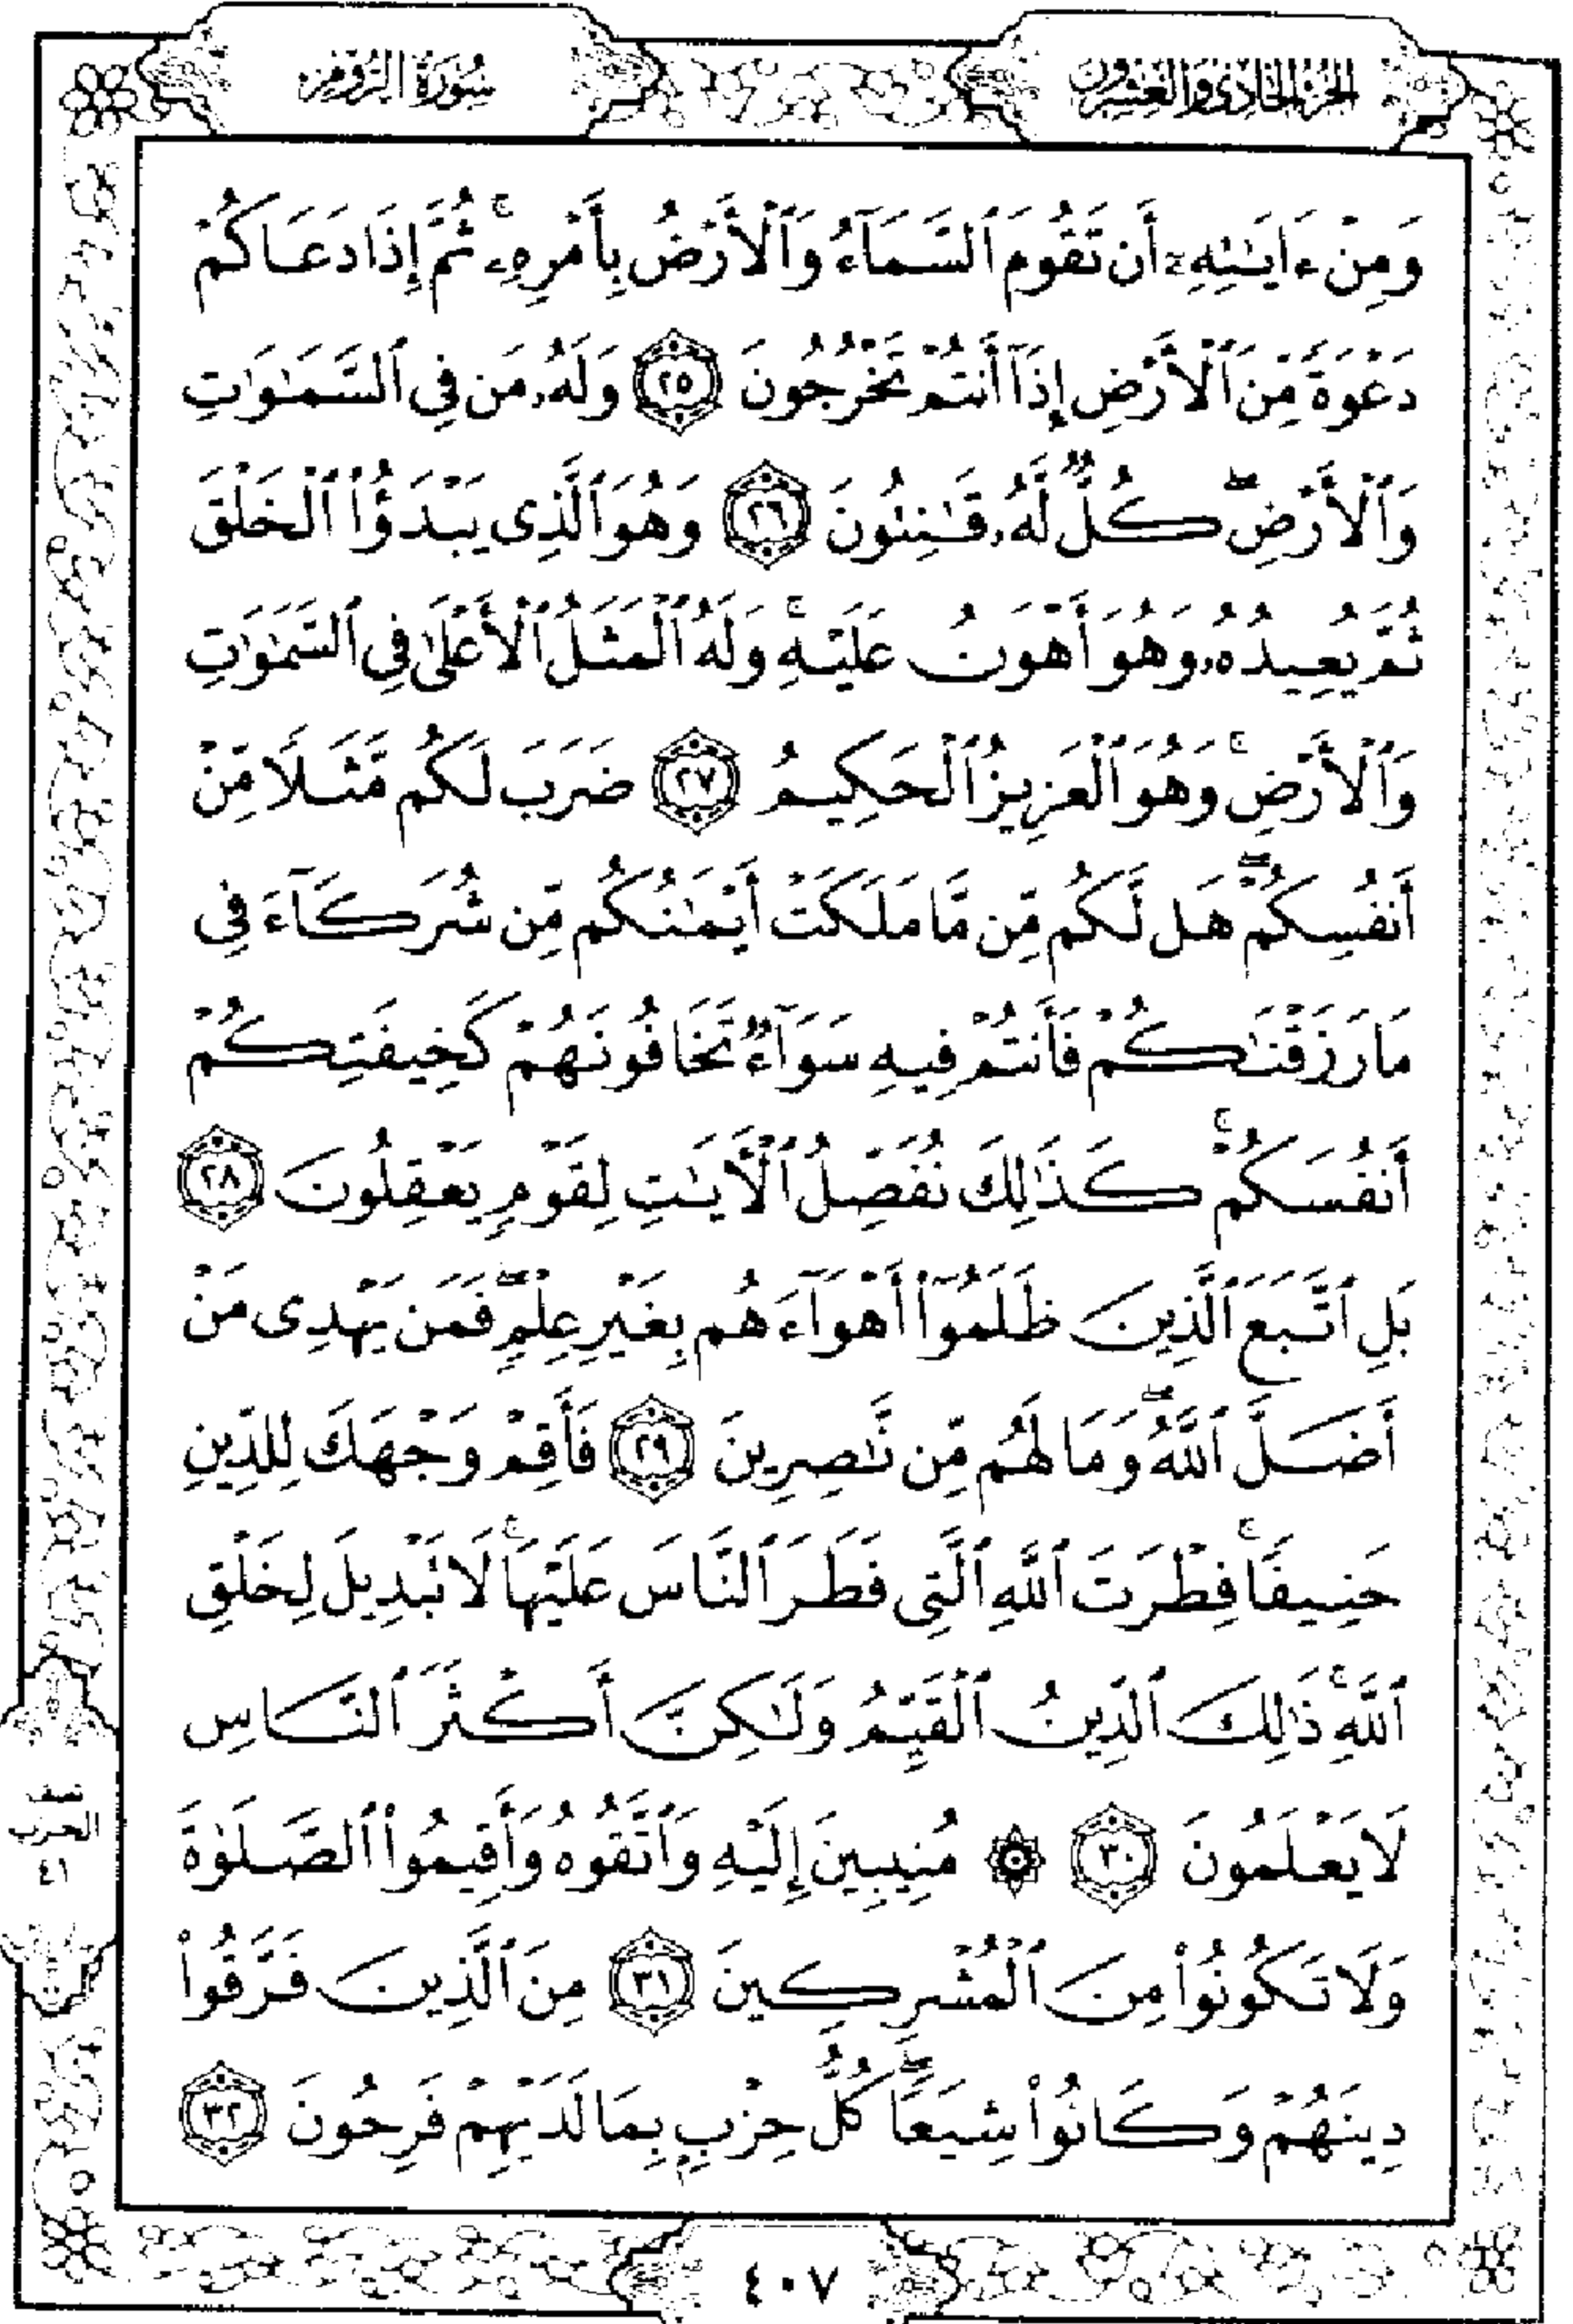 الجزء الحادي والعشرون
سُورَةُ الرُّومِ
وَمِنْ ءَايَٰتِهِۦٓ أَن تَقُومَ ٱلسَّمَآءُ وَٱلْأَرْضُ بِأَمْرِهِۦ ۚ ثُمَّ إِذَا دَعَاكُمْ
دَعْوَةً مِّنَ ٱلْأَرْضِ إِذَآ أَنتُمْ تَخْرُجُونَ ٢٥ وَلَهُۥ مَن فِى ٱلسَّمَٰوَٰتِ
وَٱلْأَرْضِ ۖ كُلٌّ لَّهُۥ قَٰنِتُونَ ٢٦ وَهُوَ ٱلَّذِى يَبْدَؤُا۟ ٱلْخَلْقَ
ثُمَّ يُعِيدُهُۥ وَهُوَ أَهْوَنُ عَلَيْهِ ۚ وَلَهُ ٱلْمَثَلُ ٱلْأَعْلَىٰ فِى ٱلسَّمَٰوَٰتِ
وَٱلْأَرْضِ ۚ وَهُوَ ٱلْعَزِيزُ ٱلْحَكِيمُ ٢٧ ضَرَبَ لَكُم مَّثَلًا مِّنْ
أَنفُسِكُمْ ۖ هَل لَّكُم مِّن مَّا مَلَكَتْ أَيْمَٰنُكُم مِّن شُرَكَآءَ فِى
مَا رَزَقْنَٰكُمْ فَأَنتُمْ فِيهِ سَوَآءٌ تَخَافُونَهُمْ كَخِيفَتِكُمْ
أَنفُسَكُمْ ۚ كَذَٰلِكَ نُفَصِّلُ ٱلْءَايَٰتِ لِقَوْمٍ يَعْقِلُونَ ٢٨
بَلِ ٱتَّبَعَ ٱلَّذِينَ ظَلَمُوٓا۟ أَهْوَآءَهُم بِغَيْرِ عِلْمٍ ۖ فَمَن يَهْدِى مَنْ
أَضَلَّ ٱللَّهُ ۖ وَمَا لَهُم مِّن نَّٰصِرِينَ ٢٩ فَأَقِمْ وَجْهَكَ لِلدِّينِ
حَنِيفًا ۚ فِطْرَتَ ٱللَّهِ ٱلَّتِى فَطَرَ ٱلنَّاسَ عَلَيْهَا ۚ لَا تَبْدِيلَ لِخَلْقِ
ٱللَّهِ ۚ ذَٰلِكَ ٱلدِّينُ ٱلْقَيِّمُ وَلَٰكِنَّ أَكْثَرَ ٱلنَّاسِ
لَا يَعْلَمُونَ ٣٠ ۞ مُنِيبِينَ إِلَيْهِ وَٱتَّقُوهُ وَأَقِيمُوا۟ ٱلصَّلَوٰةَ
وَلَا تَكُونُوا۟ مِنَ ٱلْمُشْرِكِينَ ٣١ مِنَ ٱلَّذِينَ فَرَّقُوا۟
دِينَهُمْ وَكَانُوا۟ شِيَعًا ۖ كُلُّ حِزْبٍۭ بِمَا لَدَيْهِمْ فَرِحُونَ ٣٢
نصف
الحزب
٤١
٤٠٧